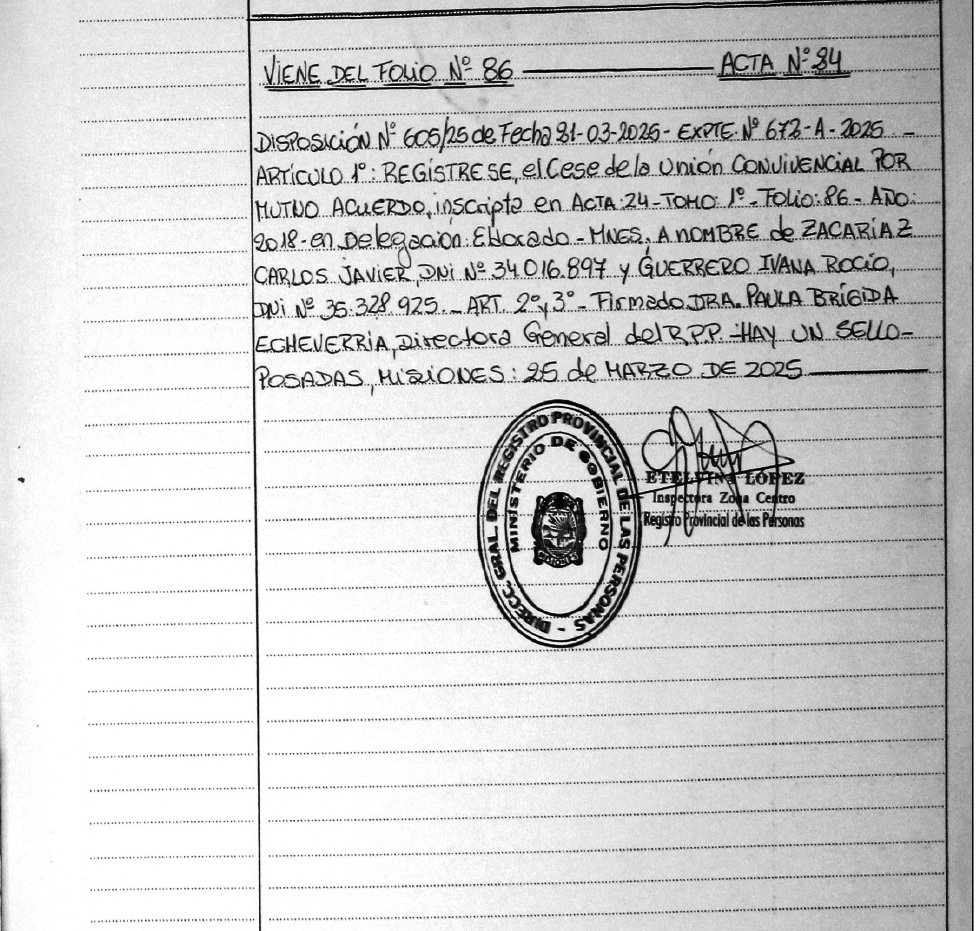 VIENE DEL FOLIO Nº 86 ACTA Nº 24
DISPOSICIÓN Nº 605/25 de Fecha 21-03-2025- EXPTE. Nº 672-A-2025 -
ARTÍCULO 1º: REGÍSTRESE, el Cese de la Unión CONVIVENCIAL POR
MUTUO ACUERDO, inscripta en ACTA: 24 - TOMO: 1º - Folio: 86 - AÑO:
2018 - en Delegación: Eldorado - MNES. A NOMBRE de ZACARÍAZ
CARLOS JAVIER, DNI Nº 34.016.897 y GUERRERO IVANA ROCÍO,
DNI Nº 35.328.925. - ART. 2º y 3º - Firmado DRA. PAULA BRÍGIDA
ECHEVERRIA, Directora General del R.P.P. - HAY UN SELLO -
POSADAS, MISIONES: 25 de MARZO DE 2025
DIRECC. GRAL. DEL REGISTRO PROVINCIAL DE LAS PERSONAS -
MINISTERIO DE GOBIERNO
ETELVINA LOPEZ
Inspectora Zona Centro
Registro Provincial de las Personas